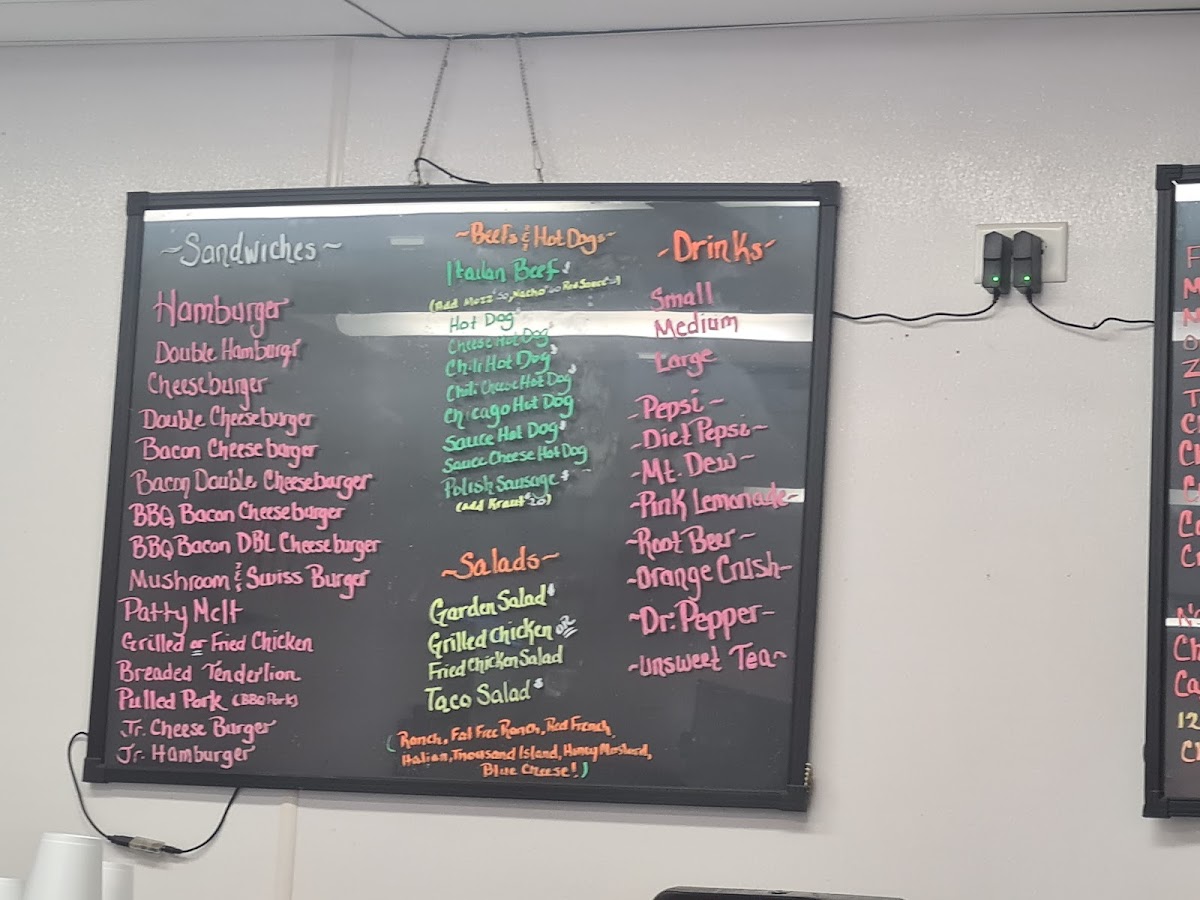 ~Sandwiches~
Hamburger
Double Hamburgr
Cheeseburger
Double Cheeseburger
Bacon Cheeseburger
Bacon Double Cheeseburger
BBQ Bacon Cheeseburger
BBQ Bacon DBL Cheeseburger
Mushroom & Swiss Burger
Patty Melt
Grilled or Fried Chicken
Breaded Tenderlion
Pulled Pork (BBQ Pork)
Jr. Cheese Burger
Jr. Hamburger
~Beefs & Hot Dogs~
Italian Beef
(Add Mozz Nacho Red Sauce)
Hot Dog
Cheese Hot Dog
Chili Hot Dog
Chili Cheese Hot Dog
Chicago Hot Dog
Sauce Hot Dog
Sauce Cheese Hot Dog
Polish Sausage
(add Kraut)
~Salads~
Garden Salad
Grilled Chicken OR
Fried Chicken Salad
Taco Salad
(Ranch, Fat Free Ranch, Red French,
Italian, Thousand Island, Honey Mustard,
Blue Cheese!)
~Drinks~
Small
Medium
Large
~Pepsi~
~Diet Pepsi~
~Mt. Dew~
~Pink Lemonade~
~Root Beer~
~Orange Crush~
~Dr. Pepper~
~Unsweet Tea~